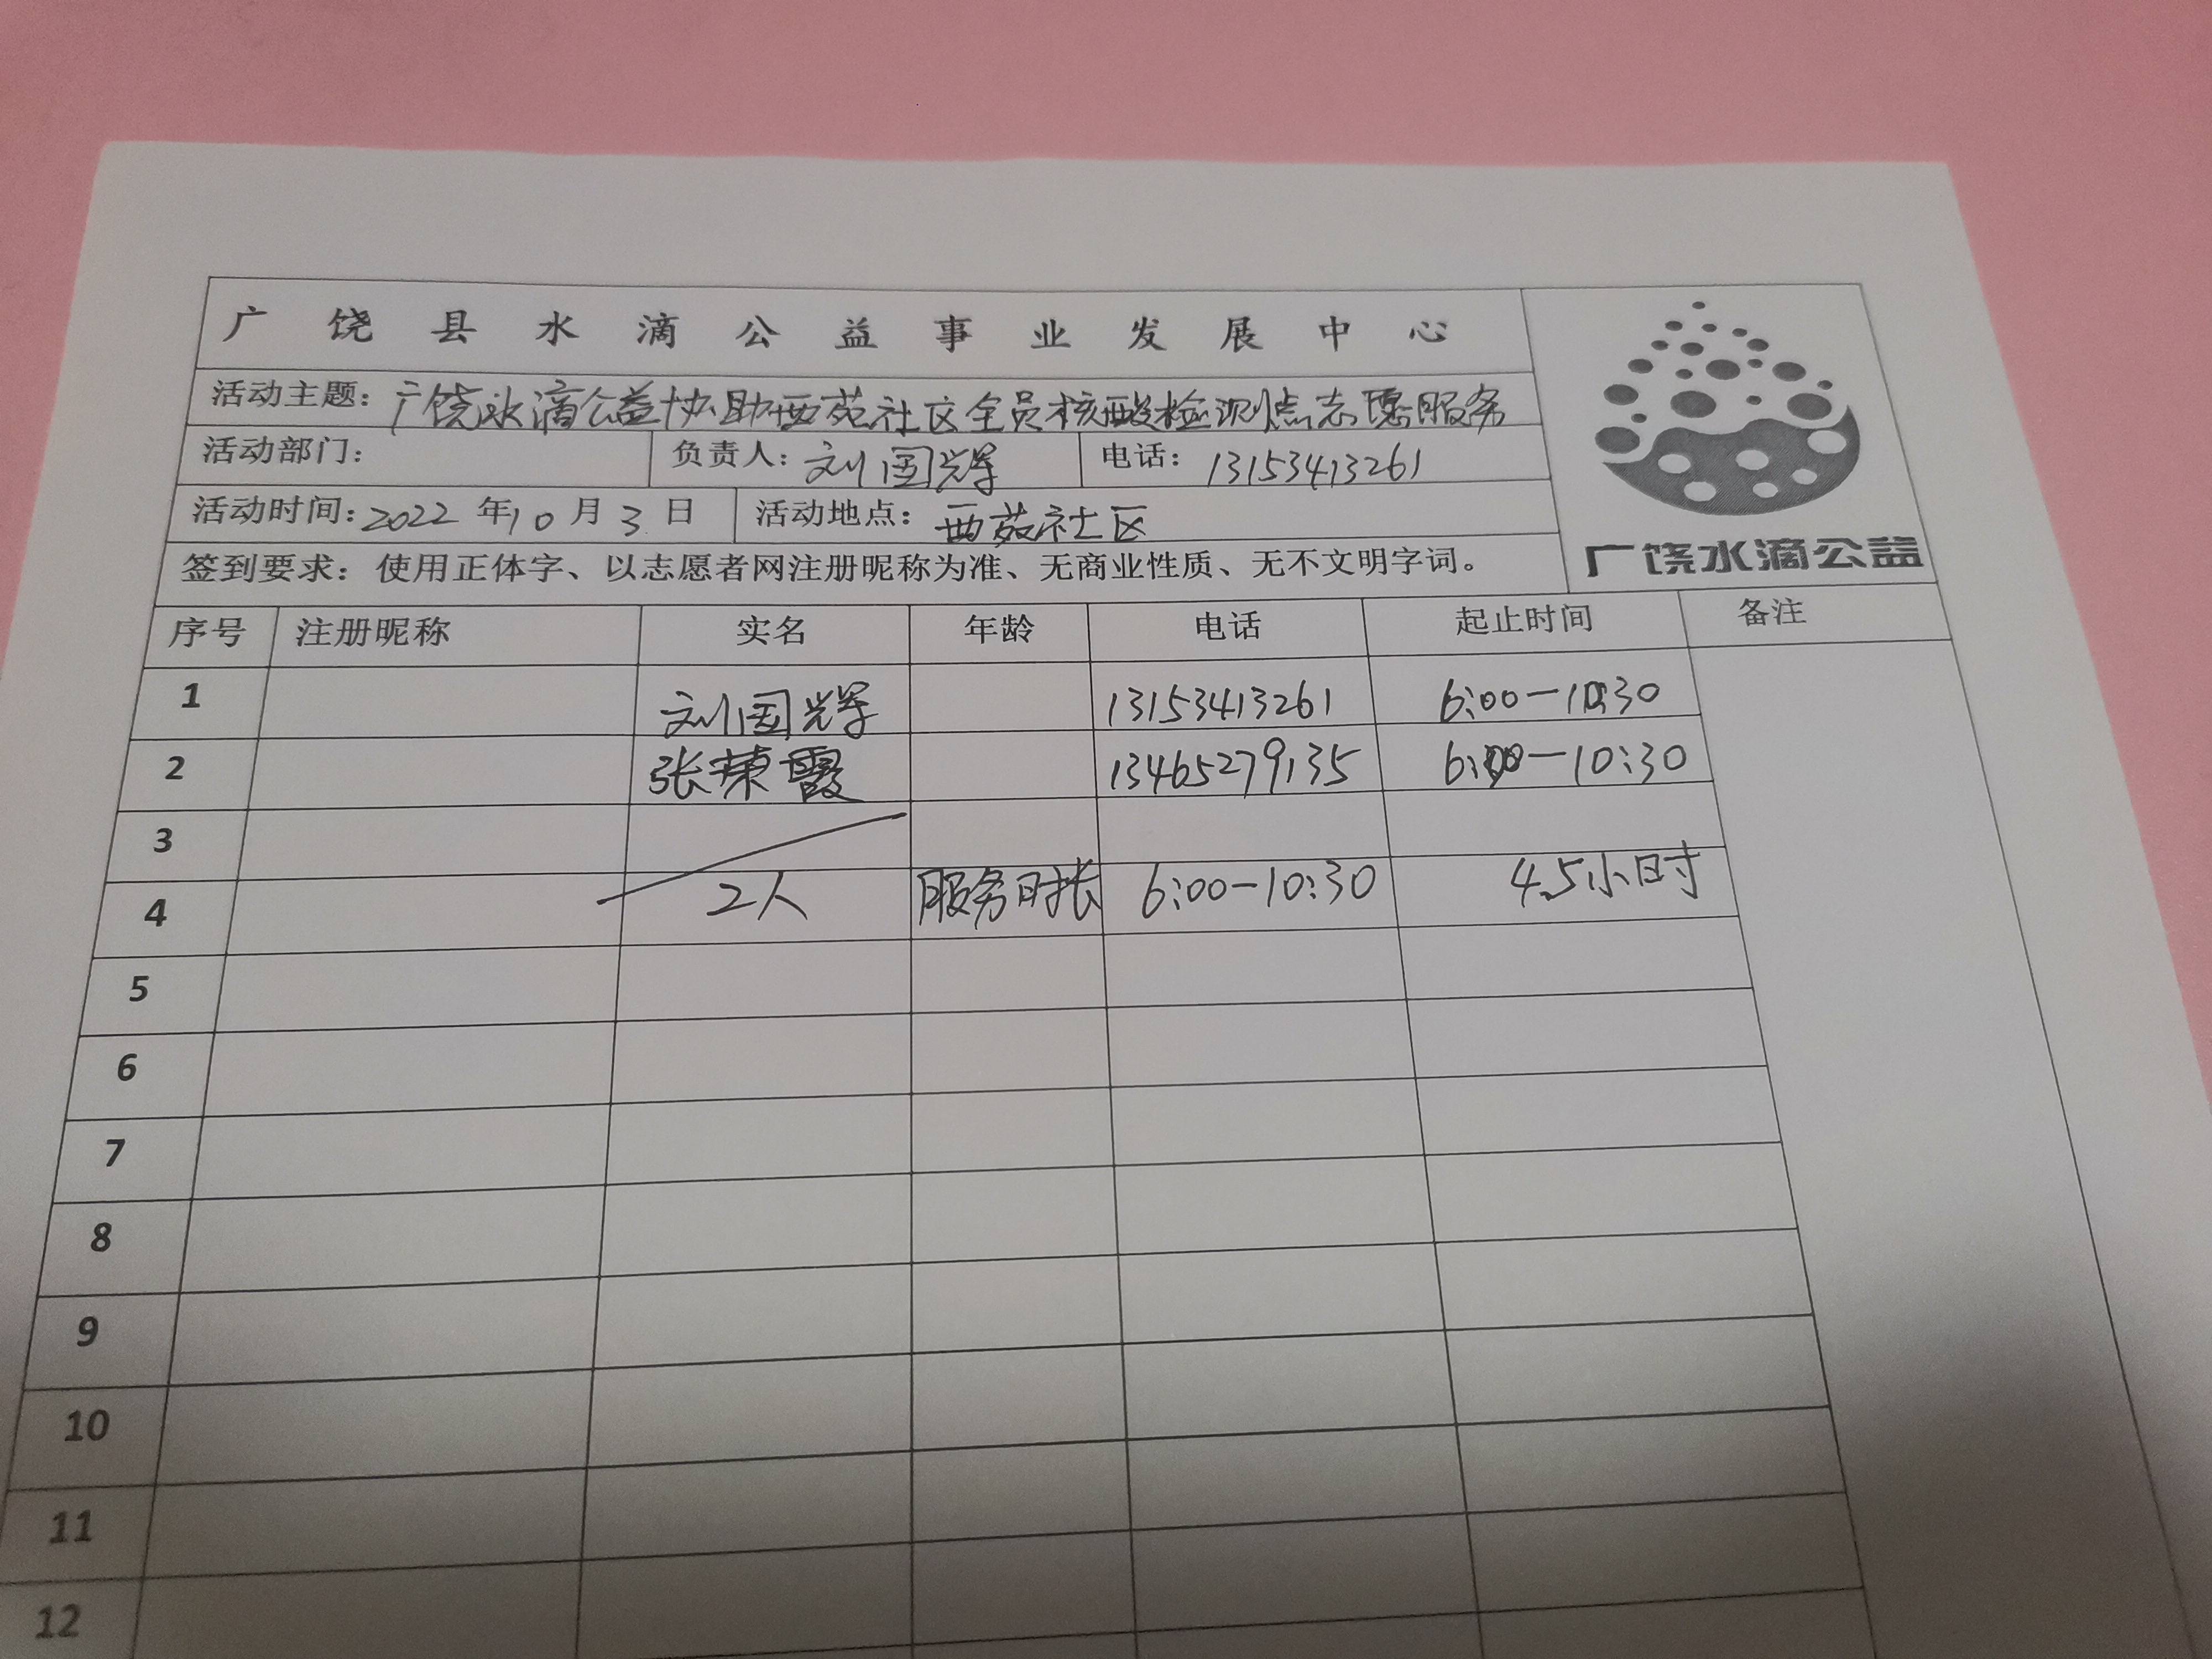 广饶县水滴公益事业发展中心
活动主题：广饶水滴公益协助西苑社区全员核酸检测点志愿服务
活动部门： 负责人：刘国辉 电话：13153413261
活动时间：2022年10月3日 活动地点：西苑社区
签到要求：使用正体字、以志愿者网注册昵称为准、无商业性质、无不文明字词。
广饶水滴公益
序号 注册昵称 实名 年龄 电话 起止时间 备注
1 刘国辉 13153413261 6:00—10:30
2 张荣霞 13465279135 6:00—10:30
3
4 2人 服务时长 6:00—10:30 4.5小时
5
6
7
8
9
10
11
12